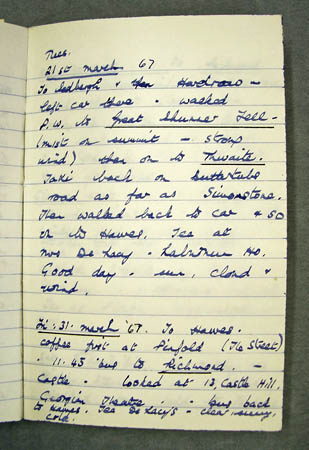 Tues.
21st march 67
To Sedbergh & then Hardraw –
left car there – walked
P.W. to Great Shunner Fell –
(mist on summit – strong
wind) then on to Thwaite.
Taxi back on Buttertubs
road as far as Simonstone.
Then walked back to car & so
on to Hawes. Tea at
Mrs De Lacy – Laburnum Ho.
Good day – sun, cloud &
wind.
Fri: 31. march '67. To Hawes.
coffee first at Pinfold (The Street)
. 11.45 'bus to Richmond. –
Castle – looked at 13, Castle Hill.
Georgian Theatre – bus back
to Hawes. Tea De Lacy's – clear, sunny,
cold.